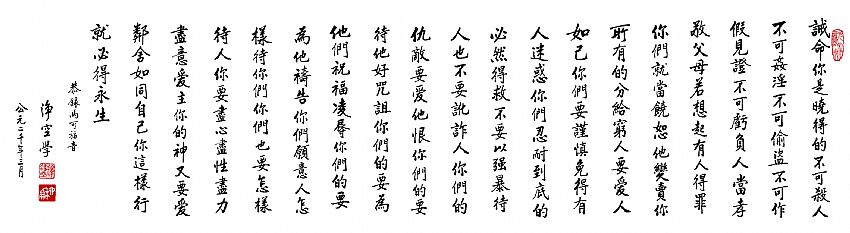 誡命你是曉得的不可殺人
不可姦淫不可偷盜不可作
假見證不可虧負人當孝
敬父母若想起有人得罪
你們就當饒恕他變賣你
所有的分給窮人要愛人
如己你們要謹慎免得有
人迷惑你們忍耐到底的
必然得救不要以强暴待
人也不要訛詐人你們的
仇敵要愛他恨你們的要
待他好咒詛你們的要為
他們祝福凌辱你們的要
為他禱告你們願意人怎
樣待你們你們也要怎樣
待人你要盡心盡性盡力
盡意愛主你的神又要愛
鄰舍如同自己你這樣行
就必得永生
恭錄馬可福音
淨空學
公元二千年三月